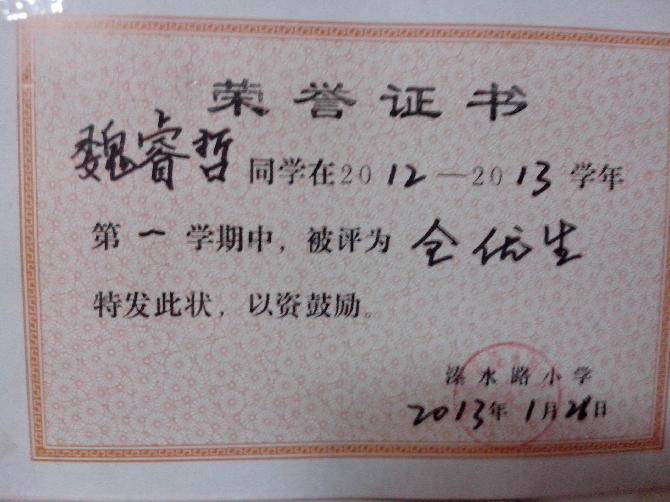 荣誉证书
魏睿哲 同学在2012—2013学年
第一学期中，被评为 全优生
特发此状，以资鼓励。
溱水路小学
2013年1月28日